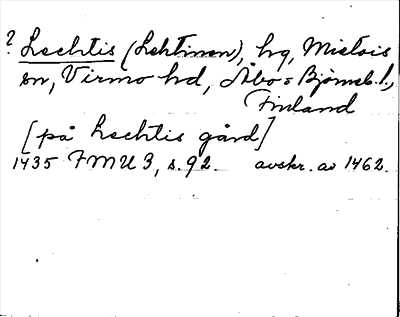 ? Lechtis (Lehtinen), hg, Mietois
sn, Virmo hd, Åbo o Björneb. l.,
Finland
[på Lechtis gård]
1435 FMU 3, s. 92. avskr. av 1462.